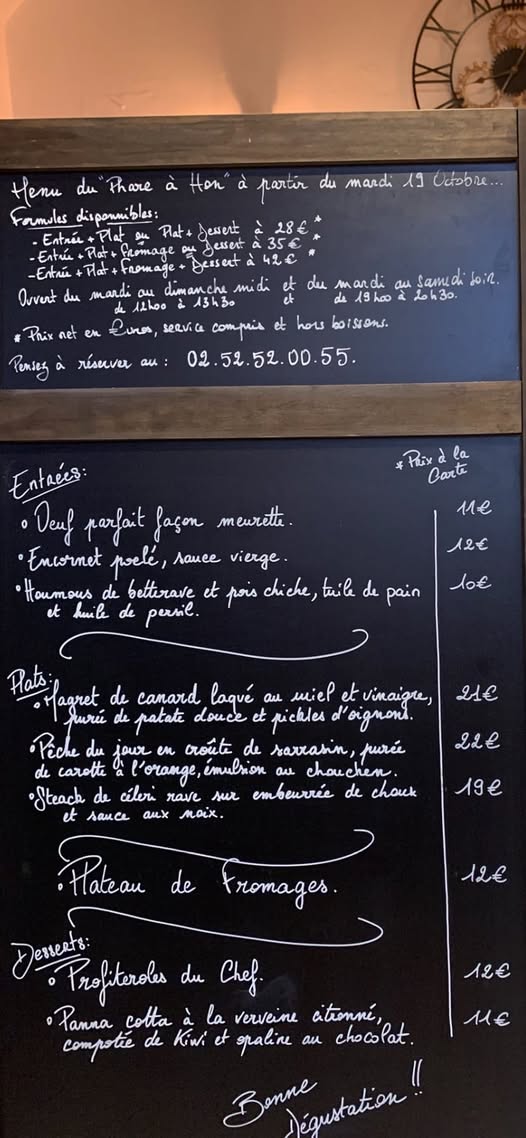 Menu du "Phare à Hon" à partir du mardi 19 Octobre...
Formules disponnibles:
- Entrée + Plat ou Plat + Dessert à 28€ *
- Entrée + Plat + fromage ou Dessert à 35€ *
- Entrée + Plat + fromage + Dessert à 42€ *
Ouvert du mardi au dimanche midi et du mardi au samedi soir.
de 12h00 à 13h30 et de 19h00 à 20h30.
* Prix net en €uros, service compris et hors boissons.
Pensez à réserver au : 02.52.52.00.55.
* Prix à la
Carte
Entrées:
• Oeuf parfait façon meurette. 11€
• Encornet poelé, sauce vierge. 12€
• Houmous de betterave et pois chiche, tuile de pain 10€
et huile de persil.
Plats:
• Magret de canard laqué au miel et vinaigre, 21€
purée de patate douce et pickles d'oignons.
• Pêche du jour en croûte de sarrasin, purée 22€
de carotte à l'orange, émulsion au chouchen.
• Steack de céleri rave sur embeurrée de choux 19€
et sauce aux noix.
• Plateau de Fromages. 12€
Desserts:
• Profiteroles du Chef. 12€
• Panna cotta à la verveine citronné, 11€
compotée de Kiwi et opaline au chocolat.
Bonne
Dégustation !!